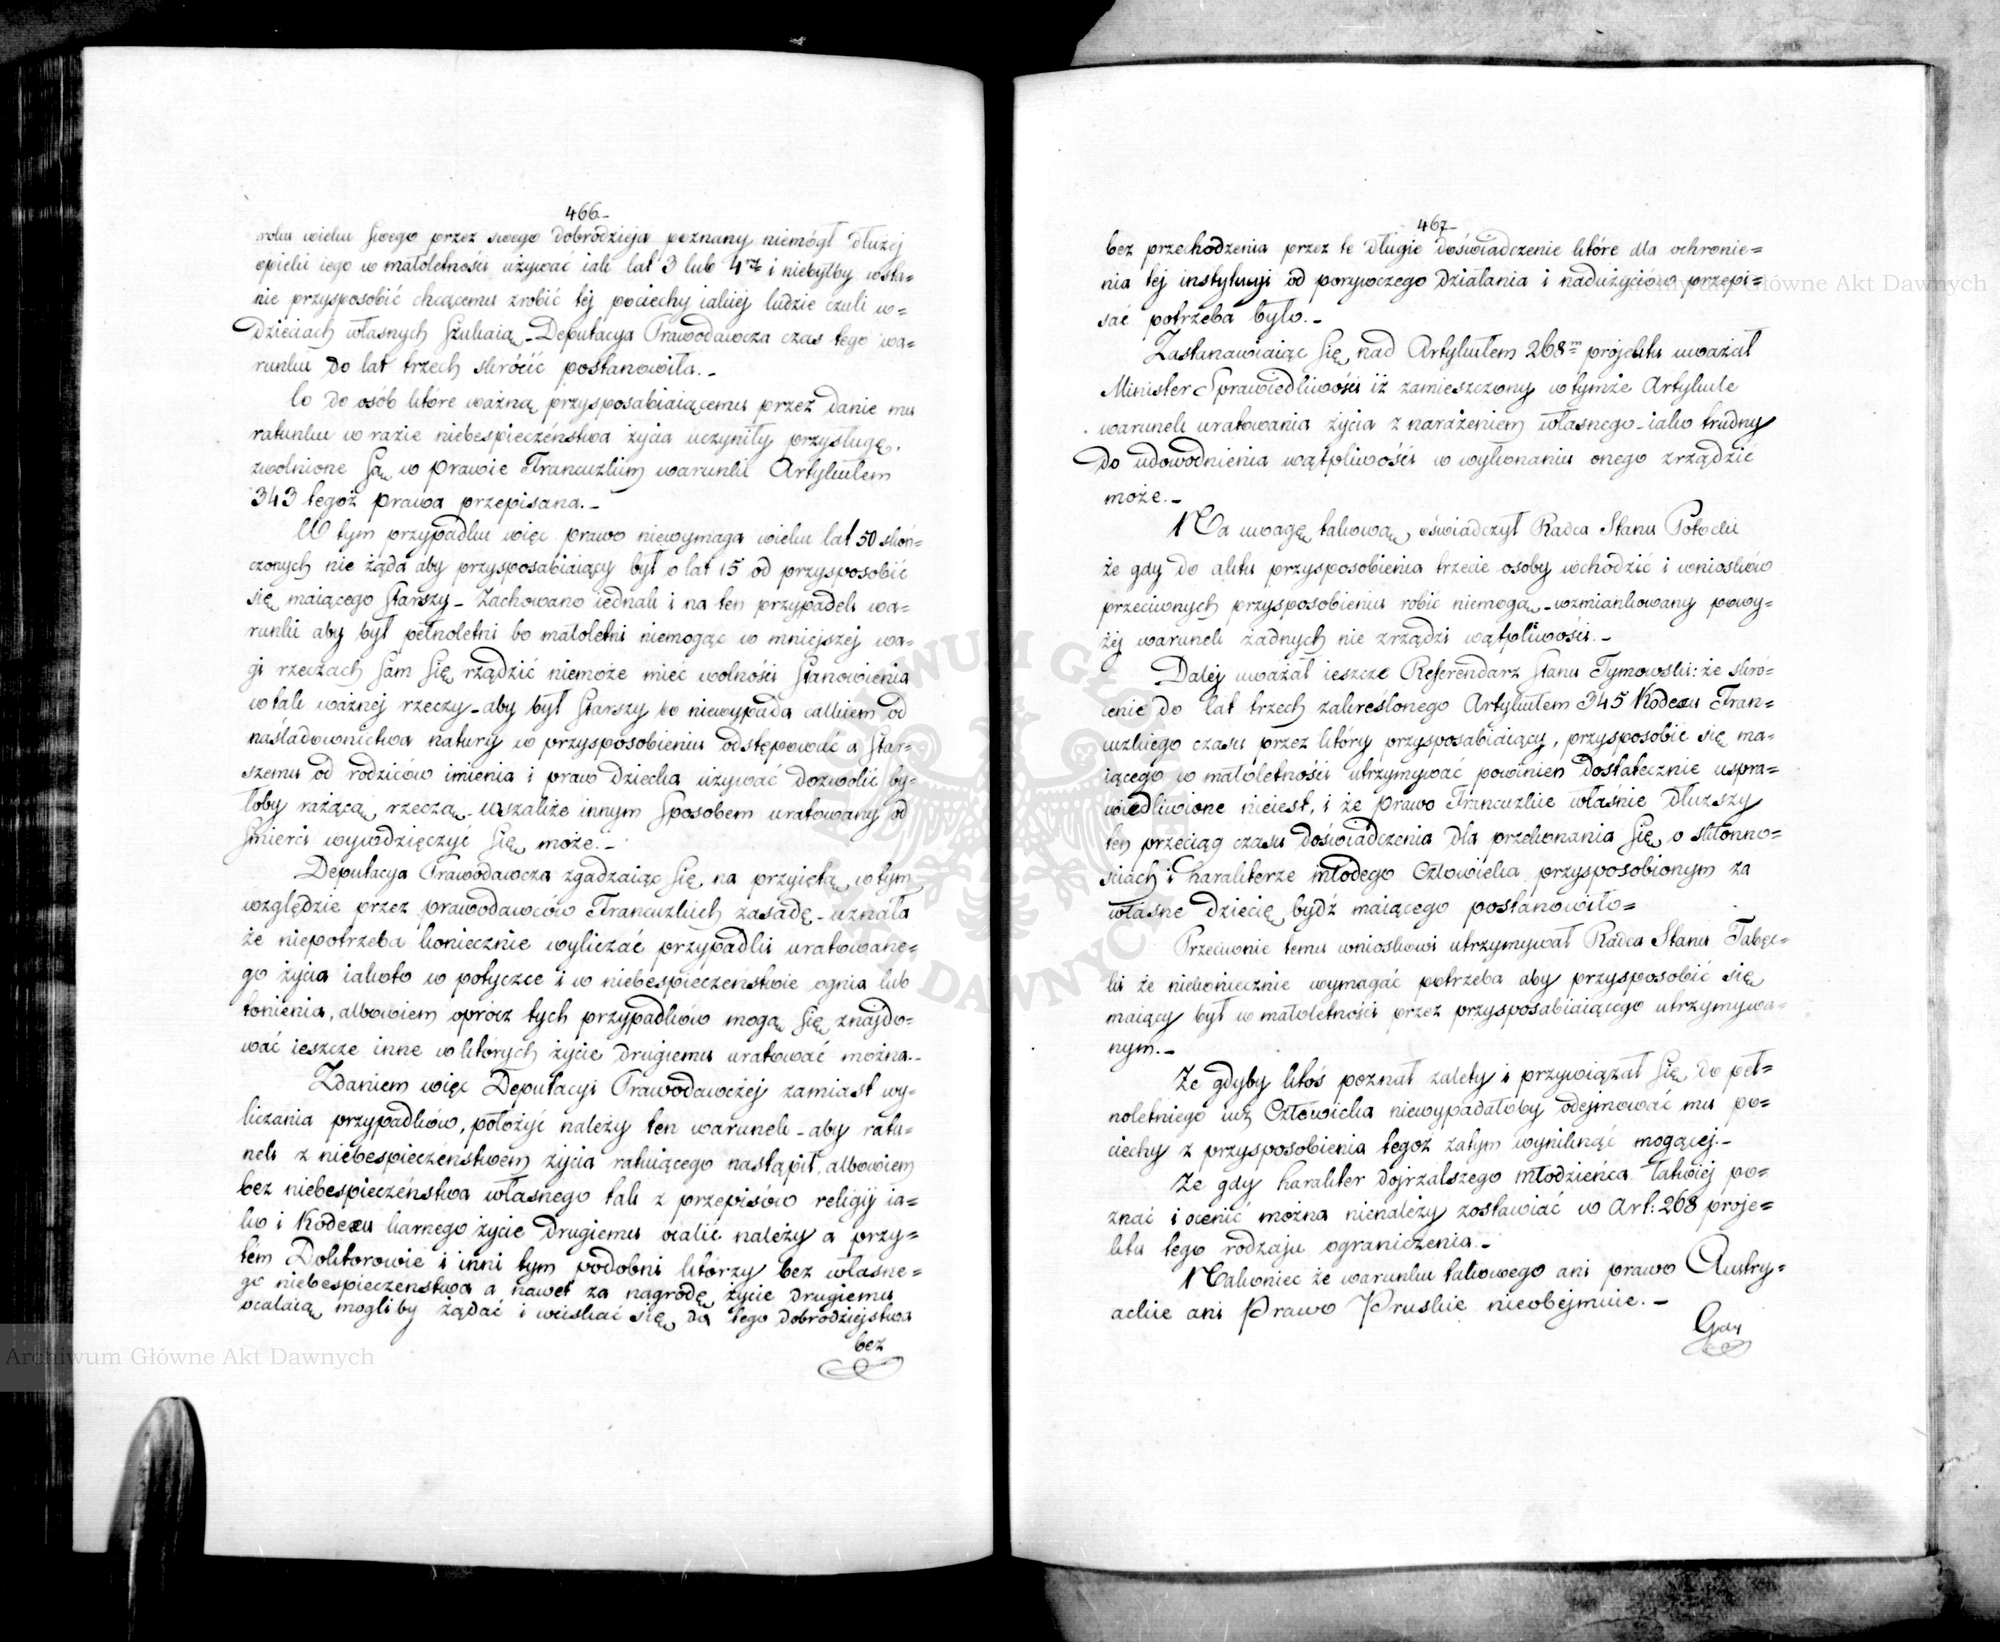 466.
roku wieku swego przez swego dobrodzieja poznany niemógł dłużej
opieki iego w małoletności używać iak lat 3 lub 4ry i niebyłby wsta=
nie przysposobić chcącemu zrobić téj pociechy iakiéj ludzie czuli w=
dzieciach własnych szukaią. Deputacya Prawodawcza czas tego wa=
runku do lat trzech skrócić postanowiła.
Co do osób które ważną przysposabiaiącemu przez danie mu
ratunku w razie niebespieczeństwa życia uczyniły przysługę,
zwolnione są w prawie Francuzkim warunki Artykułem
343 tegoż prawa przepisana.
W tym przypadku więc prawo niewymaga wieku lat 50 skoń=
czonych nie żąda aby przysposabiaiący był o lat 15 od przysposobić
się maiącego starszy. Zachowano iednak i na ten przypadek wa=
runki aby był pełnoletni bo małoletni niemogąc w mniejszej wa=
gi rzeczach sam się rządzić niemoże mieć wolności stanowienia
w tak ważnej rzeczy aby był starszy bo niewypada całkiem od
naśladownictwa natury w przysposobieniu odstępować a star=
szemu od rodziców imienia i praw dziecka używać dozwolić by=
łoby rażącą rzeczą wszakże innym sposobem uratowany od
śmierci wywdzięczyć się może.
Deputacya Prawodawcza zgadzaiąc się na przyiętą w tym
względzie przez prawodawców Francuzkich zasadę uznała
że niepotrzeba koniecznie wyliczać przypadki uratowane=
go życia iakoto w potyczce i w niebespieczeństwie ognia lub
tonienia, albowiem oprócz tych przypadków mogą się znajdo=
wać ieszcze inne w których życie drugiemu uratować można.
Zdaniem więc Deputacyi Prawodawczéj zamiast wy=
liczania przypadków, położyć należy ten warunek aby ratu=
nek z niebespieczeństwem życia ratuiącego nastąpił, albowiem
bez niebespieczeństwa własnego tak z przepisów religij ia=
ko i Kodexu karnego życie drugiemu ocalić należy a przy=
tém Doktorowie i inni tym podobni którzy bez własne=
go niebespieczenstwa a nawet za nagrodę życie drugiemu
ocalaią mogliby żądać i wciskać się do tego dobrodziejstwa
bez
467.
bez przechodzenia przez te długie doświadczenie które dla ochronie=
nia téj instytucyi od porywczego działania i nadużyciów przepi=
sać potrzeba było.
Zastanawiaiąc się nad Artykułem 268m projektu uważał
Minister Sprawiedliwości iż zamieszczony w tymże Artykule
warunek uratowania życia z narażeniem własnego iako trudny
do udowodnienia wątpliwości w wykonaniu onego zrządzić
może.
Na uwagę takową, oświadczył Radca Stanu Potocki
że gdy do aktu przysposobienia trzecie osoby wchodzić i wniosków
przeciwnych przysposobieniu robić niemogą wzmiankowany powy=
żéj warunek żadnych nie zrządzi wątpliwości.
Daléj uważał ieszcze Referendarz Stanu Tymowski: że skró=
cenie do lat trzech zakreślonego Artykułem 345 Kodexu Fran=
cuzkiego czasu przez który przysposabiaiący, przysposobić się ma=
iącego w małoletności utrzymywać powinien dostatecznie uspra=
wiedliwione nieiest, i że Prawo Francuzkie właśnie dłuższy
ten przeciąg czasu doświadczenia dla przekonania się o skłonno=
ściach i charakterze młodego Człowieka przysposobionym za
własne dziecię bydź maiącego postanowiło=
Przeciwnie temu wnioskowi utrzymywał Radca Stanu Tabęc=
ki że niekoniecznie wymagać potrzeba aby przysposobić się
maiący był w małoletności przez przysposabiaiącego utrzymywa=
nym.
Że gdyby ktoś poznał zalety i przywiązał się do peł=
noletniego iuż Człowieka niewypadałoby odejmować mu po=
ciechy z przysposobienia tegoż zatym wyniknąć mogącéj.
Że gdy charakter dojrzalszego młodzieńca łatwiéj po=
znać i ocenić można nienależy zostawiać w Art: 268 proje=
ktu tego rodzaju ograniczenia.
Nakoniec że warunku takowego ani prawo Austry=
ackie ani Prawo Pruskie nieobejmuie.
Gdy
Archiwum Główne Akt Dawnych
Główne Akt Dawnych
ARCHIWUM GŁÓWNE AKT DAWNYCH